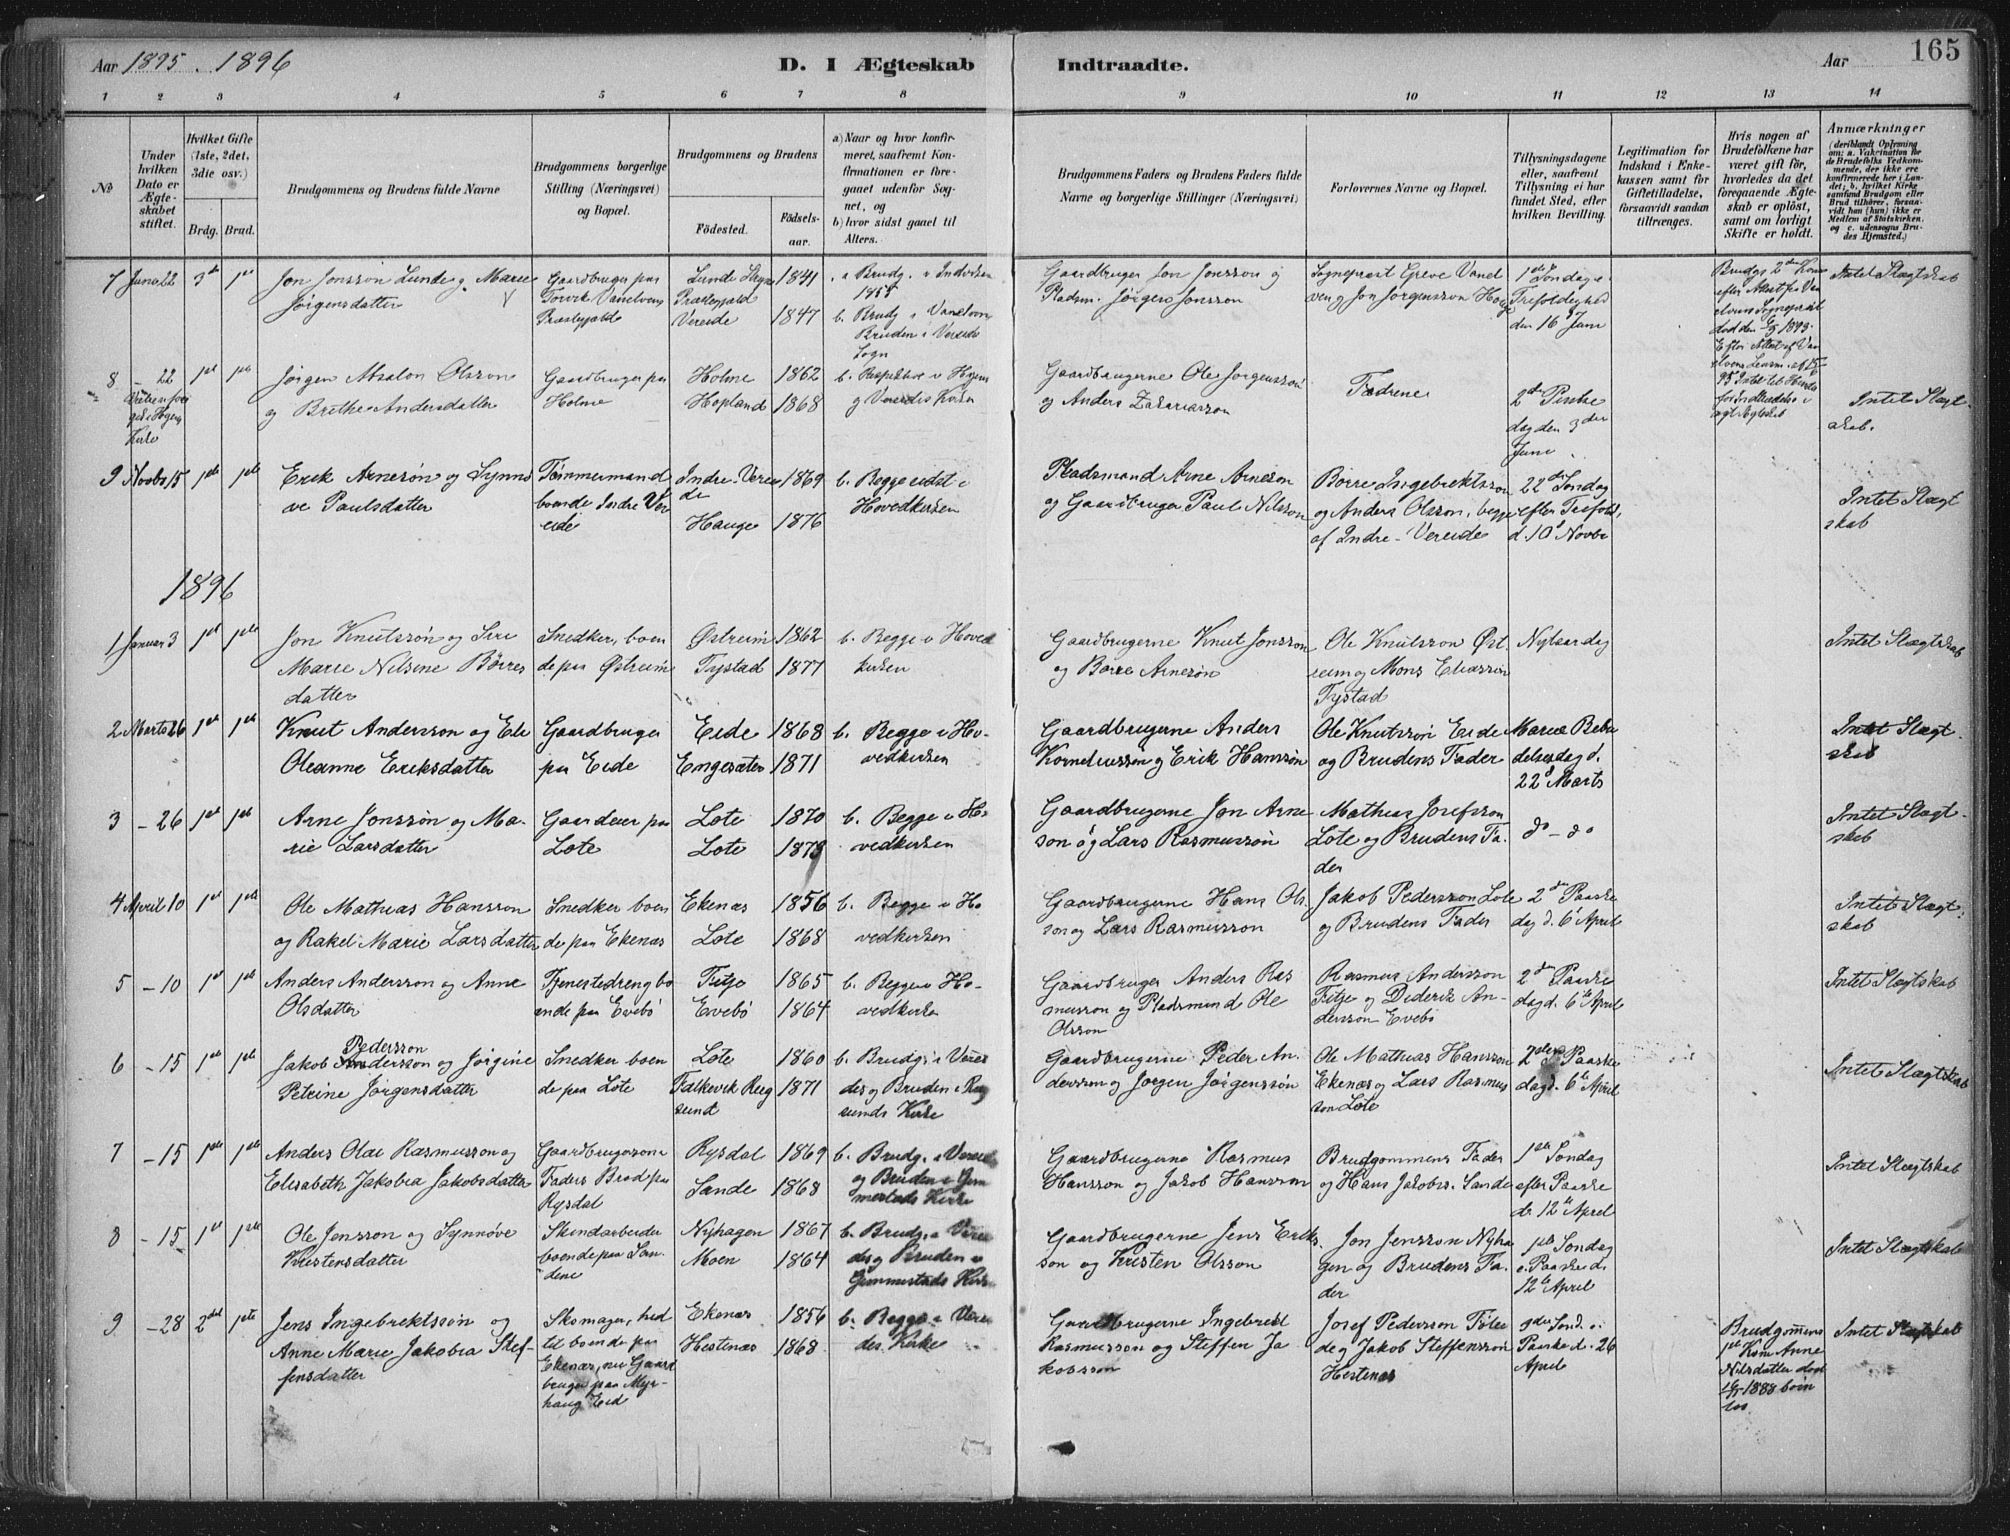 Aar 1895. 1896
D. I Ægteskab
Indtraadte.
Aar
165
1 2 3 4 5 6 7 8 9 10 11 12 13 14
No
Under hvilken Dato er Ægteskabet stiftet.
Hvilket Gifte (1ste, 2det, 3die osv.)
Brdg. Brud.
Brudgommens og Brudens fulde Navne
Brudgommens borgerlige Stilling (Næringsvei) og Bopæl.
Brudgommens og Brudens
Födested.
Födselsaar.
a) Naar og hvor konfirmeret, saafremt Konfirmationen er foregaaet udenfor Sognet, og
b) hvor sidst gaaet til Alters.
Brudgommens Faders og Brudens Faders fulde Navne og borgerlige Stillinger (Næringsvei)
Forlovernes Navne og Bopæl.
Tillysningsdagene eller, saafremt Tillysning ei har fundet Sted, efter hvilken Bevilling.
Legitimation for Indskud i Enkekassen samt for Giftetilladelse, forsaavidt saadan tiltrænges.
Hvis nogen af Brudefolkene har været gift før, hvorledes da det foregaaende Ægteskab er oplöst, samt om lovligt Skifte er holdt.
Anmærkninger (deriblandt Oplysning om: a. Vakcination for de Brudefolks Vedkommende, der ikke ere konfirmerede her i Landet; b. hvilket Kirkesamfund Brudgom eller Brud tilhörer, forsaavidt han (hun) ikke er Medlem af Statskirken, og c. udensogns Brudes Hjemsted.)
7 Juni 22 3de 1ste
Jon Jonsson Lunde og Marie
Jørgensdatter
Gaardbruger paa
Torvik Vanelvens
Præstegjæld
Præstegjæld
Vereide
1841
1847
1855
b. Brudg. i Vanelven
Bruden i Vereide
Sogn
Gaardbruger Jon Jonsson og
Pladsm. Jørgen Jonsson
Sogneprest Greve Vanel
ven og Jon Jørgensson Hauge
1ste Søndag e.
Trefoldighed
den 16 Juni
Intet Slægtskab
8 - 22 1ste 1ste
Jørgen Absalon Olsson
og Brithe Andersdatter
Gaardbruger paa
Holme
Holme
Hopland
1862
1868
Gaardbrugerne Ole Jørgensson
og Anders Zakariasson
Fædrene
2den Pintse
dag den 3die
Juni
Intet Slægt
skab.
9 Novbr 15 1ste 1ste
Erik Arnesøn og Synnø
ve Paulsdatter
Tømmermand
boende Indre Ver
eide
Indre-Verei
de
Hauge
1869
1876
b. Begge sidst i
Hovedkirken
Pladsmand Arne Arneson
og Gaardbruger Paul Nilsson
Børre Ingebrektsson
og Anders Olsson, begge
af Indre-Vereide
22de Søndag
efter Trefold.
d. 10d Novbr
Intet Slægt
skab
1896
1 Januar 3 1ste 1ste
Jon Knutssøn og Siri
Marie Nilsine Børres
datter
Snedker, boen
de paa Østreim
Østreim
Tystad
1862
1877
b. Begge i Hoved
kirken
Gaardbrugerne Knut Jonsson
og Børre Arnesøn
Ole Knutsson Øst
reim og Mons Eliassøn
Tystad
Nytaarsdag
Intet Slægtskab
2 Marts 26 1ste 1ste
Knut Andersson og Eli
Oleanne Eriksdatter
Gaardbruger
paa Eide
Eide
Engesæter
1868
1871
b. Begge i Ho-
vedkirken
Gaardbrugerne Anders
Korneliussen og Erik Hanssøn
Ole Knutssøn Eide
og Brudens Fader
Mariæ Bebu
delsesdag d.
22d Marts
Intet Slægt-
skab
3 - 26 1ste 1ste
Arne Jonssøn og Ma-
rie Larsdatter
Gaardeier paa
Lote
Lote
Lote
1870
1878
b. Begge i Ho-
vedkirken
Gaardbrugerne Jon Arne
son og Lars Rasmussøn
Mathias Josefsson
Lote og Brudens Fa-
der
do - do
Intet Slægt-
skab
4 April 10 1ste 1ste
Ole Mathias Hansson
og Rakel Marie Larsdatter
Snedker boen
de paa Ekenæs
Ekenæs
Lote
1856
1868
b. Begge i Ho
vedkirken
Gaardbrugerne Hans Ols-
son og Lars Rasmusson
Jakob Pedersson Lote
og Brudens Fader
2den Paaske
dag d. 6te April
Intet Slægt-
skab
5 - 10 1ste 1ste
Anders Andersson og Anne
Olsdatter
Tjenestedreng bo
ende paa Evebø
Fitje
Evebø
1865
1864
b. Begge i Ho-
vedkirken
Gaardbruger Anders Ras
musson og Pladsmand Ole
Olsson
Rasmus Andersson
Fitje og Diderik An-
dersson Evebø
2den Paaske
dag d. 6te April
Intet Slægtskab
6 - 15 1ste 1ste
Pedersson
Jakob Andersson og Jørgine
Petrine Jørgensdatter
Snedker boen
de paa Lote
Lote
Falkevik Rug
sund
1860
1871
b. Brudg. i Verei
des og Bruden i Rug
sunds Kirke
Gaardbrugerne Peder An-
dersson og Jørgen Jørgenssøn
Ole Mathias Hansson
Ekenæs og Lars Rasmus
son Lote
2den Paaske
dag d. 6te April
Intet Slægtskab
7 - 15 1ste 1ste
Anders Olai Rasmusson og
Elisabeth Jakobia Jakobsdatter
Gaardbrugersøn i
Faders Brød paa
Rysdal
Rysdal
Sande
1869
1868
b. Brudg. i Vereid
og Bruden i Gim
mestads Kirke
Gaardbrugerne Rasmus
Hansson og Jakob Hansson
Brudgommens Fader
og Hans Jakobss. Sande
1ste Søndag
efter Paaske
d. 12te April
Intet Slægtskab
8 - 15 1ste 1ste
Ole Jensson og Synnøve
Kristensdatter
Skindarbeider
boende paa San-
dene
Nyhagen
Moen
1867
1864
b. Brudg. i Verei
des og Bruden i
Gimmestads Kirke
Gaardbrugerne Jens Eriks
son og Kristen Olsson
Jon Jensson Nyha
gen og Brudens Fa-
der
1ste Søndag
e. Paaske d.
12te April
Intet Slægtskab
9 - 28 2det 1ste
Jens Ingebrektssøn og
Anne Marie Jakobia Stef-
fensdatter
Skomager, hid
til boende paa
Ekenæs, nu Gaard
bruger paa Myr-
haug Eid
Ekenæs
Hestenæs
1856
1868
b. Begge i Verei
des Kirke
Gaardbrugerne Ingebrekt
Rasmusson og Steffen Ja
kobsson
Josef Pedersson Fitje
og Jakob Steffenssøn
Hestenæs
3die Sønd. e.
Paaske d. 26
April
Brudgommens
1ste Kone Anne
Nilsdatter død
1888
Intet Slægtskab